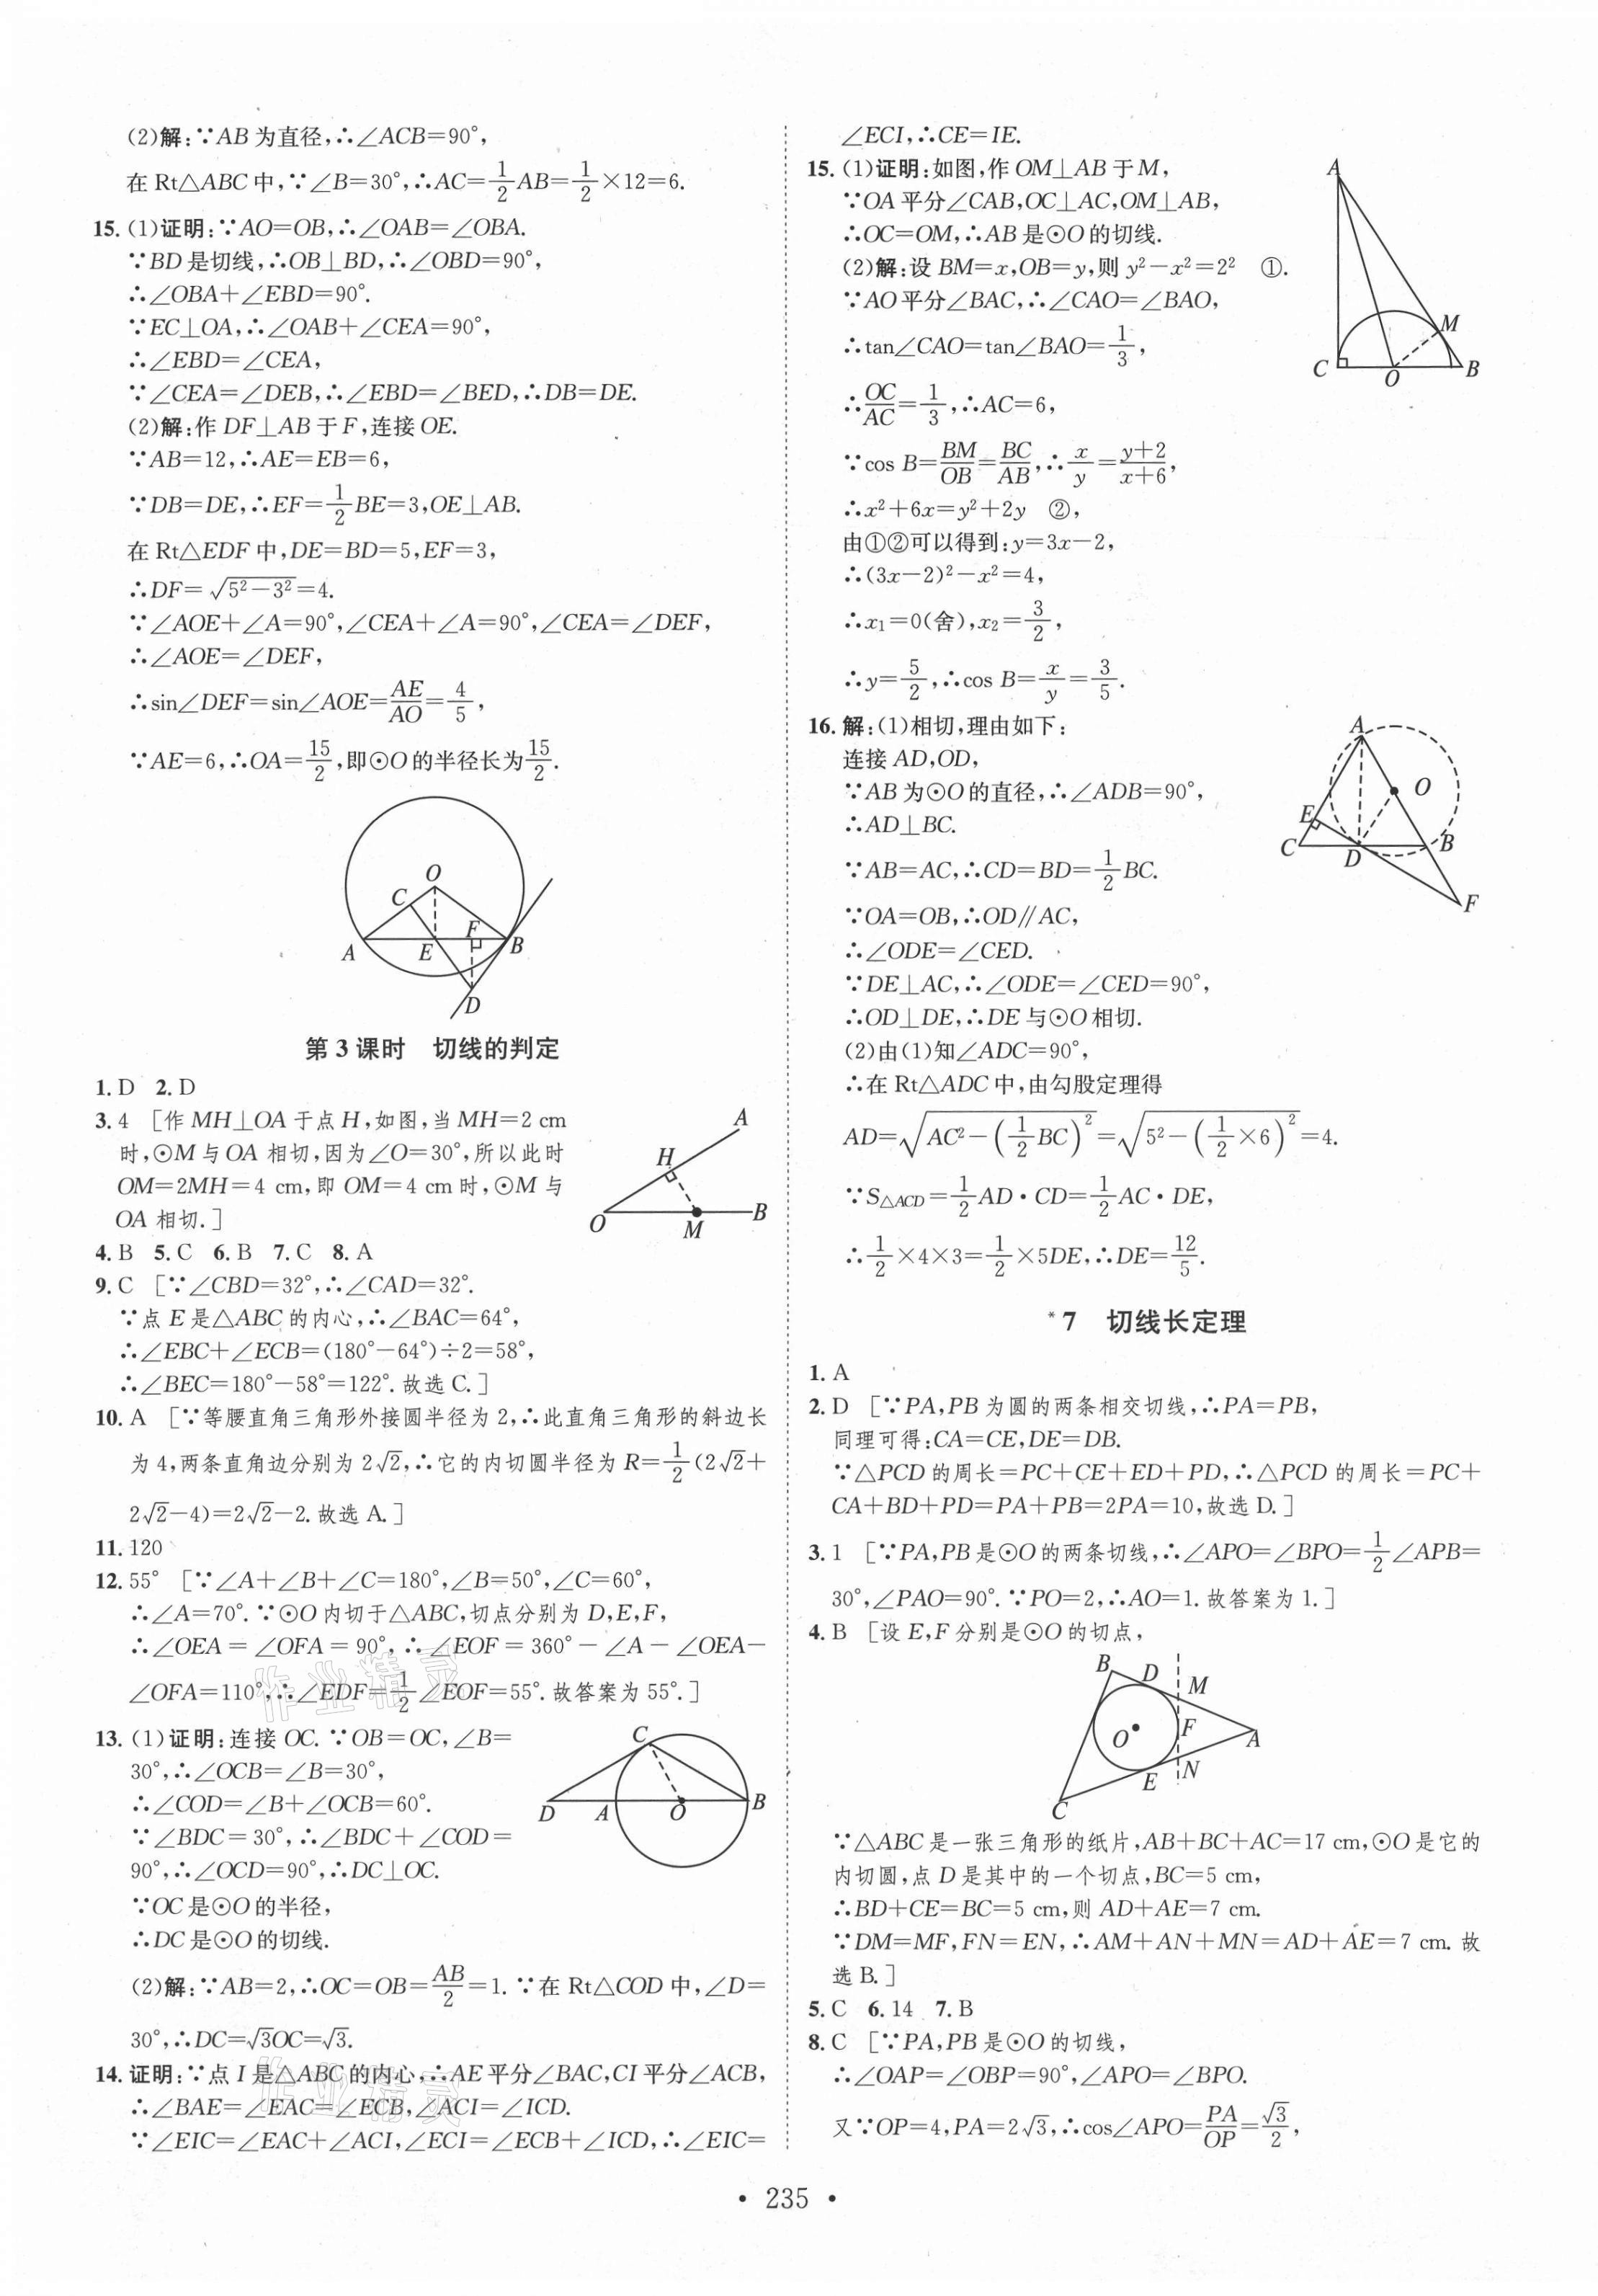 (2)解:∵AB为直径,∴∠ACB=90°,
在Rt△ABC中,∵∠B=30°,∴AC=1/2AB=1/2×12=6.
15.(1)证明:∵AO=OB,∴∠OAB=∠OBA.
∵BD是切线,∴OB⊥BD,∴∠OBD=90°,
∴∠OBA+∠EBD=90°.
∵EC⊥OA,∴∠OAB+∠CEA=90°,
∴∠EBD=∠CEA,
∵∠CEA=∠DEB,∴∠EBD=∠BED,∴DB=DE.
(2)解:作DF⊥AB于F,连接OE.
∵AB=12,∴AE=EB=6,
∵DB=DE,∴EF=1/2BE=3,OE⊥AB.
在Rt△EDF中,DE=BD=5,EF=3,
∴DF=√(5²-3²)=4.
∵∠AOE+∠A=90°,∠CEA+∠A=90°,∠CEA=∠DEF,
∴∠AOE=∠DEF,
∴sin∠DEF=sin∠AOE=AE/AO=4/5,
∵AE=6,∴OA=15/2,即⊙O的半径长为15/2.
O
C
F
A
E
B
D
第3课时 切线的判定
1.D 2.D
3.4 [作MH⊥OA于点H,如图,当MH=2 cm
时,⊙M与OA相切,因为∠O=30°,所以此时
OM=2MH=4 cm,即OM=4 cm时,⊙M与
OA相切.]
A
H
O
M
B
4.B 5.C 6.B 7.C 8.A
9.C [∵∠CBD=32°,∴∠CAD=32°.
∵点E是△ABC的内心,∴∠BAC=64°,
∴∠EBC+∠ECB=(180°-64°)÷2=58°,
∴∠BEC=180°-58°=122°.故选C.]
10.A [∵等腰直角三角形外接圆半径为2,∴此直角三角形的斜边长
为4,两条直角边分别为2√2,∴它的内切圆半径为R=1/2(2√2+
2√2-4)=2√2-2.故选A.]
11.120
12.55° [∵∠A+∠B+∠C=180°,∠B=50°,∠C=60°,
∴∠A=70°.∵⊙O内切于△ABC,切点分别为D,E,F,
∴∠OEA=∠OFA=90°,∴∠EOF=360°-∠A-∠OEA-
∠OFA=110°,∴∠EDF=1/2∠EOF=55°.故答案为55°.]
13.(1)证明:连接OC.∵OB=OC,∠B=
30°,∴∠OCB=∠B=30°,
∴∠COD=∠B+∠OCB=60°.
∵∠BDC=30°,∴∠BDC+∠COD=
90°,∴∠OCD=90°,∴DC⊥OC.
∵OC是⊙O的半径,
∴DC是⊙O的切线.
C
D
A
O
B
(2)解:∵AB=2,∴OC=OB=AB/2=1.∵在Rt△COD中,∠D=
30°,∴DC=√3OC=√3.
14.证明:∵点I是△ABC的内心,∴AE平分∠BAC,CI平分∠ACB,
∴∠BAE=∠EAC=∠ECB,∠ACI=∠ICD.
∵∠EIC=∠EAC+∠ACI,∠ECI=∠ECB+∠ICD,∴∠EIC=
作业精灵
作业精灵
∠ECI,∴CE=IE.
15.(1)证明:如图,作OM⊥AB于M,
∵OA平分∠CAB,OC⊥AC,OM⊥AB,
∴OC=OM,∴AB是⊙O的切线.
(2)解:设BM=x,OB=y,则y²-x²=2² ①.
∵AO平分∠BAC,∴∠CAO=∠BAO,
∴tan∠CAO=tan∠BAO=1/3,
∴OC/AC=1/3,∴AC=6,
∵cos B=BM/OB=BC/AB,∴x/y=(y+2)/(x+6),
∴x²+6x=y²+2y ②,
由①②可以得到:y=3x-2,
∴(3x-2)²-x²=4,
∴x₁=0(舍),x₂=3/2,
∴y=5/2,∴cos B=x/y=3/5.
A
M
C
O
B
16.解:(1)相切,理由如下:
连接AD,OD,
∵AB为⊙O的直径,∴∠ADB=90°,
∴AD⊥BC.
∵AB=AC,∴CD=BD=1/2BC.
∵OA=OB,∴OD∥AC,
∴∠ODE=∠CED.
∵DE⊥AC,∴∠ODE=∠CED=90°,
∴OD⊥DE,∴DE与⊙O相切.
(2)由(1)知∠ADC=90°,
∴在Rt△ADC中,由勾股定理得
AD=√(AC²-(1/2BC)²)=√(5²-(1/2×6)²)=4.
∵S△ACD=1/2AD·CD=1/2AC·DE,
∴1/2×4×3=1/2×5DE,∴DE=12/5.
A
O
E
C
D
B
F
*7 切线长定理
1.A
2.D [∵PA,PB为圆的两条相交切线,∴PA=PB,
同理可得:CA=CE,DE=DB.
∵△PCD的周长=PC+CE+ED+PD,∴△PCD的周长=PC+
CA+BD+PD=PA+PB=2PA=10,故选D.]
3.1 [∵PA,PB是⊙O的两条切线,∴∠APO=∠BPO=1/2∠APB=
30°,∠PAO=90°.∵PO=2,∴AO=1.故答案为1.]
4.B [设E,F分别是⊙O的切点,
B
D
M
O
F
A
E
N
C
∵△ABC是一张三角形的纸片,AB+BC+AC=17 cm,⊙O是它的
内切圆,点D是其中的一个切点,BC=5 cm,
∴BD+CE=BC=5 cm,则AD+AE=7 cm.
∵DM=MF,FN=EN,∴AM+AN+MN=AD+AE=7 cm.故
选B.]
5.C 6.14 7.B
8.C [∵PA,PB是⊙O的切线,
∴∠OAP=∠OBP=90°,∠APO=∠BPO.
又∵OP=4,PA=2√3,∴cos∠APO=PA/OP=√3/2,
• 235 •